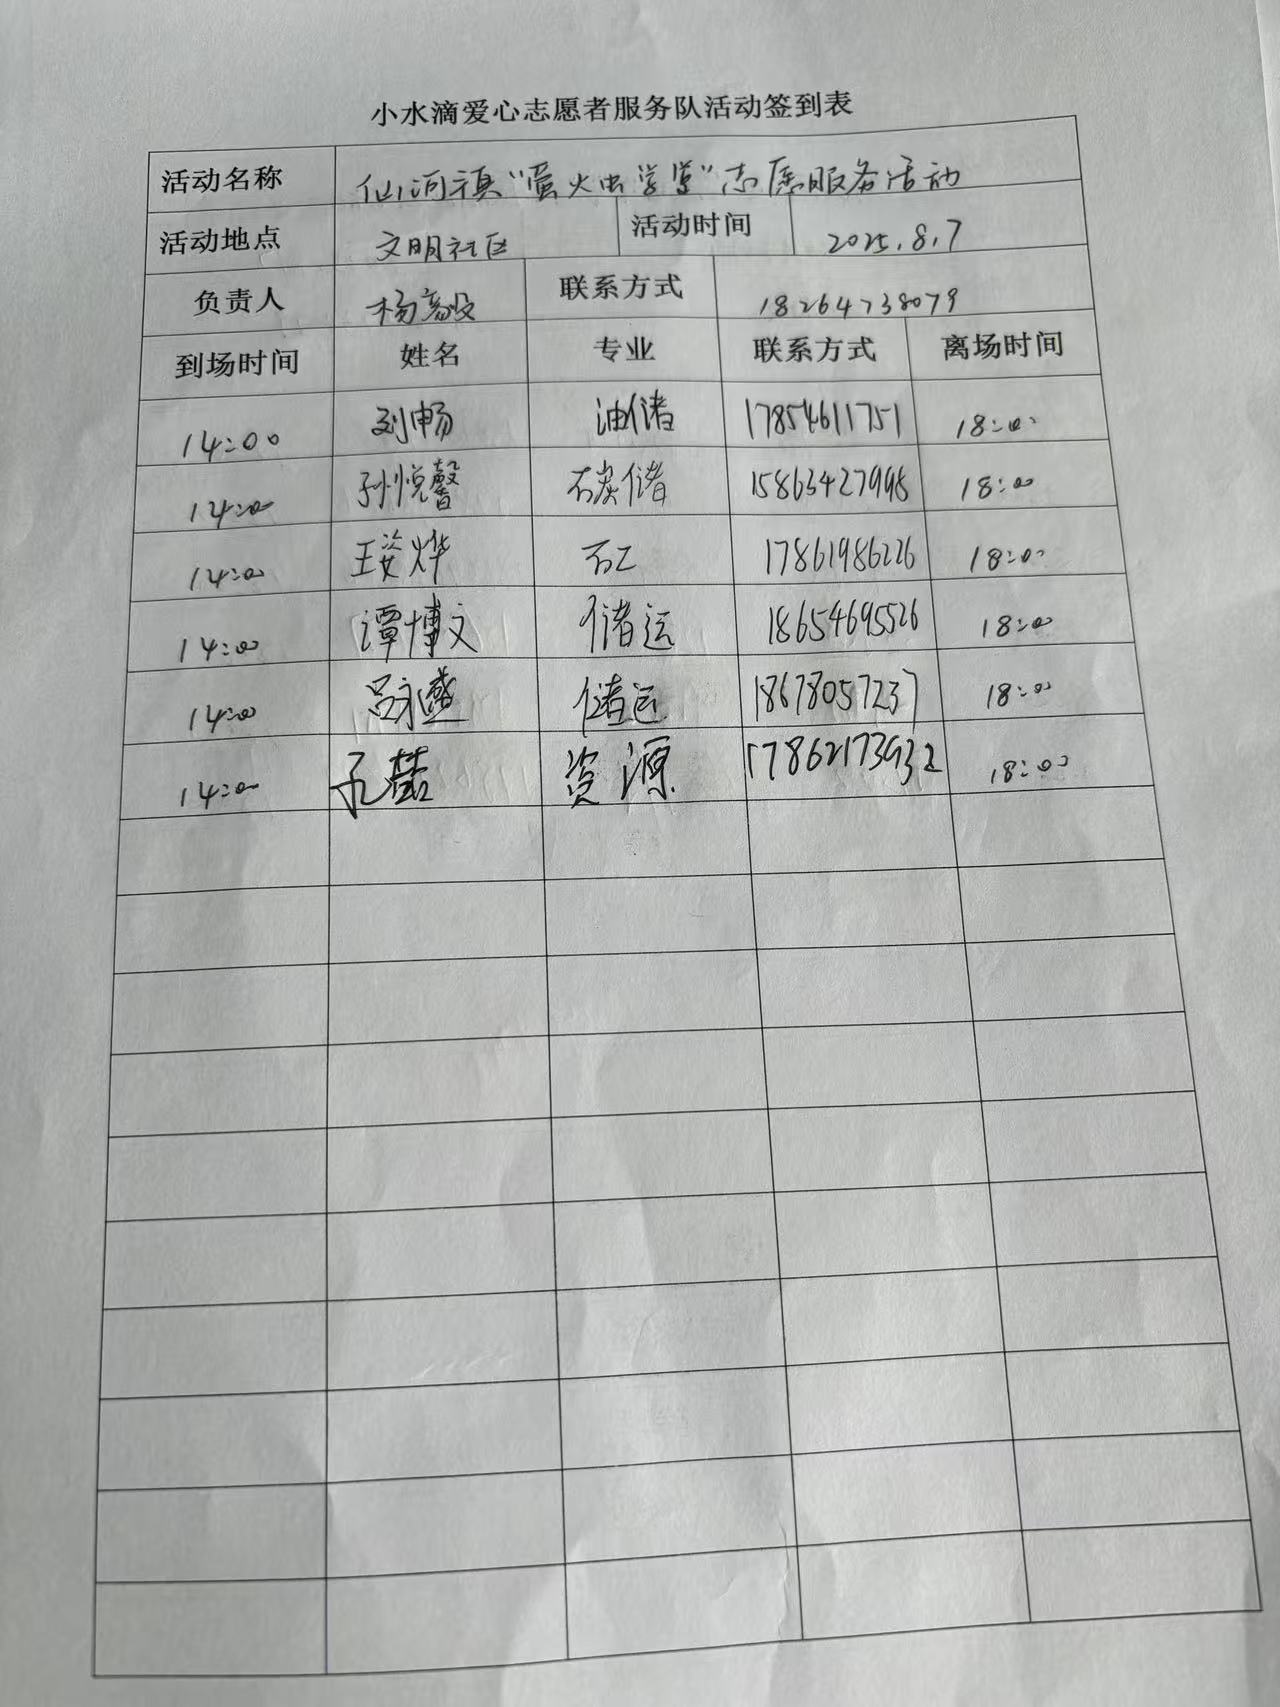 小水滴爱心志愿者服务队活动签到表
活动名称 仙河镇“萤火虫学堂”志愿服务活动
活动地点 文明社区 活动时间 2025.8.7
负责人 杨 联系方式 18264738079
到场时间 姓名 专业 联系方式 离场时间
14:00 刘畅 油储 17854611751 18:00
14:00 孙悦馨 碳储 15863427998 18:00
14:00 王姿烨 石工 17861986226 18:00
14:00 谭博文 储运 18654695526 18:00
14:00 吕永盛 储运 18678057237 18:00
14:00 孔喆 资源 17862173932 18:00